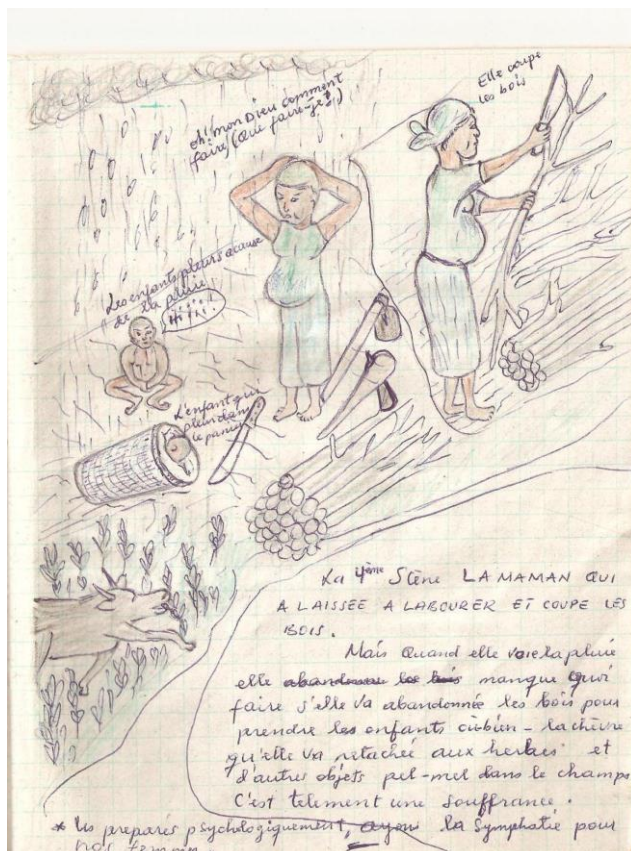 Elle coupe
les bois
eh! mon Dieu comment
faire (que faire-je?)
Les enfants pleurs acause
de la pluie
Hiiii!
L'enfant qui
pleur dans
le panier
La 4ème Stène LA MAMAN QUI
A LAISSEE A LABOURER ET COUPE LES
BOIS.
Mais Quand elle voie la pluie
elle abandonne les bois manque quoi
faire s'elle va abandonnée les bois pour
prendre les enfants oubien - la chèvre
qu'elle va retachée aux herbes et
d'autres objets pel-mel dans le champs
C'est telement une souffrance.
* Us preparés psychologiquement, ayons la Symphatie pour
nos femmes